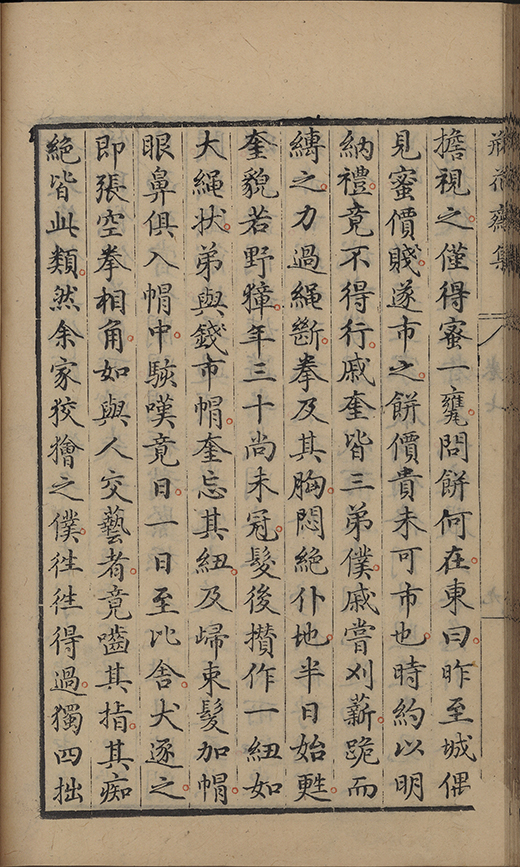 瓶花齋集
卷七
九
擔視之僅得蜜一甕問餅何在東曰昨至城偶
見蜜價賤遂市之餅價貴未可市也時約以明
納禮竟不得行戚奎皆三弟僕戚嘗刈薪跪而
縳之力過繩斷拳及其胸悶絶仆地半日始甦
奎貌若野獐年三十尚未冠髮後攅作一紐如
大繩状弟與錢市帽奎忘其紐及㱕束髮加帽
眼鼻俱入帽中駭嘆竟日一日至比舍犬逐之
即張空拳相角如與人交藝者竟嚙其指其痴
絶皆此類然余家狡獪之僕徃徃得過獨四拙